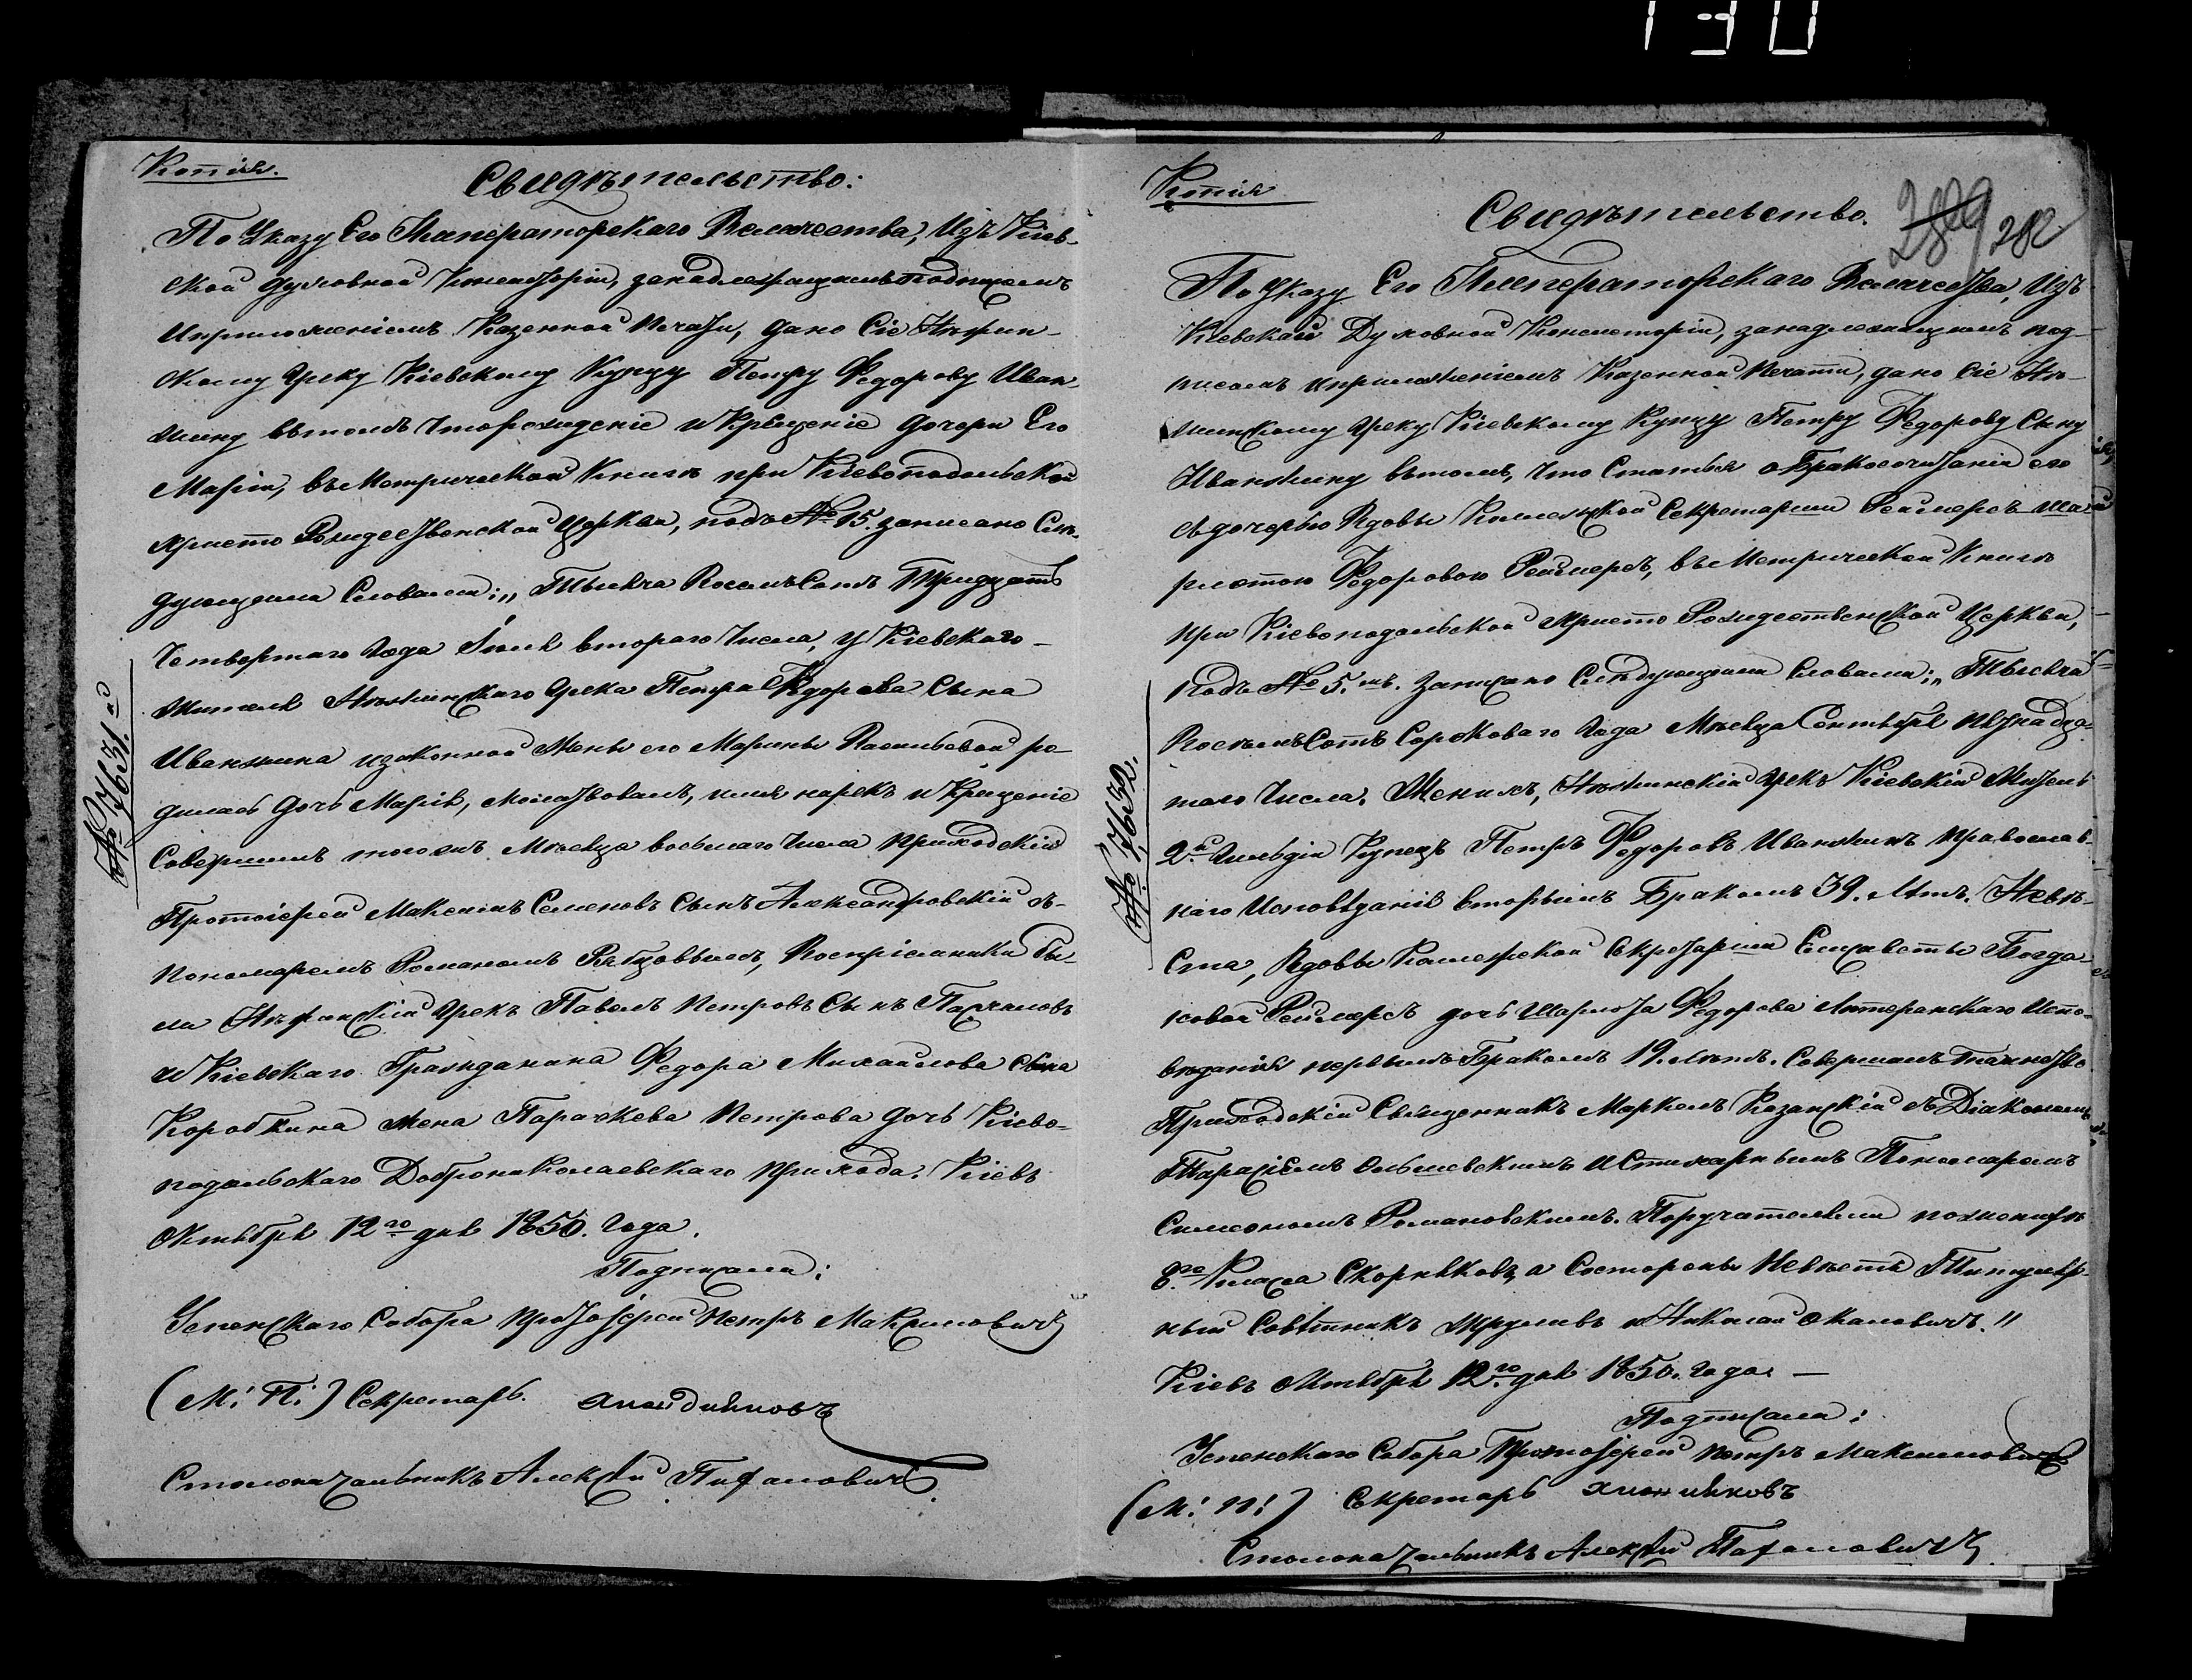 130
Копія.
Свидѣтельство:
По Указу Его Императорскаго Величества, изъ Кіев-
ской Духовной Консисторіи, за надлежащимъ подписомъ
и приложеніемъ Казенной Печати, дано Сіе Нѣжин-
скому Греку Кіевскому Купцу Петру Федорову Иван
шину въ томъ что рожденіе и Крещеніе дочери Его
Маріи, въ Метрической Книгѣ при Кіевоподольской
Христо Рождественской Церкви, подъ № 15. записано Слѣ-
дующими Словами: „Тысяча Восемъ Сотъ Тридцать
Четвертаго Года Іюля втораго Числа, у Кіевскаго
Жителя Нѣжинскаго Грека Петра Федорова Сына
Иваншина и законной Жены его Марины Васильевой ро-
дилась дочь Марія, молитвовалъ, имя нарекъ и Крещеніе
Совершилъ тогожъ Мѣсяца восьмаго Числа Приходскій
Протоіерей Максимъ Семеновъ Сынъ Александровскій съ
Пономаремъ Романомъ, Воспріемники бы-
ли Нѣжинскій Грекъ Павелъ Петровъ Сынъ
и Кіевскаго Гражданина Федора Михайлова Сына
Коробкина Жена Параскева Петрова дочь Кіево-
подольскаго Доброниколаевскаго Прихода. Кіевъ
Октября 12го дня 1850. Года.
Подписали:
Успенскаго Собора Протоіерей Петръ Максимовичъ
(М: П:) Секретарь.
Столоначальникъ Алексѣй
№ 7631.й
Копія
Свидѣтельство.
289 282
По Указу Его Императорскаго Величества, Изъ
Кіевской Духовной Консисторіи, за надлежащимъ под-
писомъ и приложеніемъ Казенной Печати, дано Сіе Нѣ-
жинскому Греку Кіевскому Купцу Петру Федорову Сыну
Иваншину въ томъ, что Статья о Бракосочитаніи его
съ дочерью Вдовы Коллежской Секретарши Реймерсъ Ша
рлотою Федоровою Реймерсъ, въ Метрической Книгѣ
при Кіевоподольской Христо Рождественской Церкви,
подъ № 5.мъ. Записано Слѣдующими Словами: „Тысяча
Восемъ Сотъ Сороковаго Года Мѣсяца Сентября Пятнадца-
таго Числа. Женихъ, Нѣжинскій Грекъ Кіевскій Житель
2й Гильдіи Купецъ Петръ Федоровъ Иваншинъ Православ-
наго Исповѣданія вторымъ Бракомъ 39. Лѣтъ. Невѣ-
ста, Вдовы Коллежской Секретарши Елисаветы Богда-
новой Реймерсъ дочь Шарлота Федорова Лютеранскаго Испо-
вѣданія первымъ Бракомъ 19. Лѣтъ. Совершалъ Таинство
Приходскій Священникъ Маркелъ Казанскій съ Діакономъ
Тарасіемъ Ольшевскимъ и Стихарнымъ Пономаремъ
Симеономъ Романовскимъ. Поручателями по женихѣ
8го Класса Скорняковъ, а Состороны Невѣсты Титуляр-
ный Совѣтникъ и Николай"
Кіевъ Октября 12го дня 1850. Года. —
Подписали:
Успенскаго Собора Протоіерей Петръ Максимовичъ
(М: П:) Секретарь
Столоначальникъ Алексѣй
№ 7632.